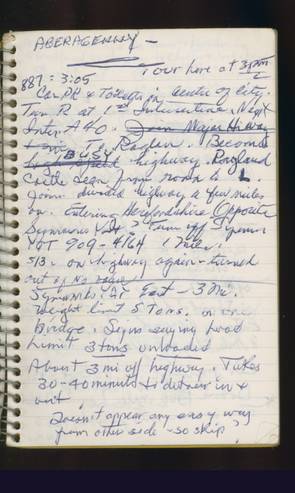 ABERAGENNY -
Tour here at 3pm
887 : 3:05
Car PK & Toilets in centre of City.
Turn R at 1st Intersection. Next
Inter. A40. Join Major Hiway
To Raglan. Becomes
BUSY highway. Ragland
Castle seen from road to L.
Joins divided highway a few miles
on. Entering Herefordshire Opposite
Symonds Yat? Turn off Symon
YOT 909 - 4164 1 mile.
5/3. on highway again - turned
out of No
Symonds Yat East - 3 Mi.
Weight limit 5 Tons. on one
Bridge. Signs saying Load
Limit 3 tons unloaded
About 3 mi off highway. Takes
30-40 minutes to detour in &
out.
Doesn't appear any easy way
from other side - so skip?